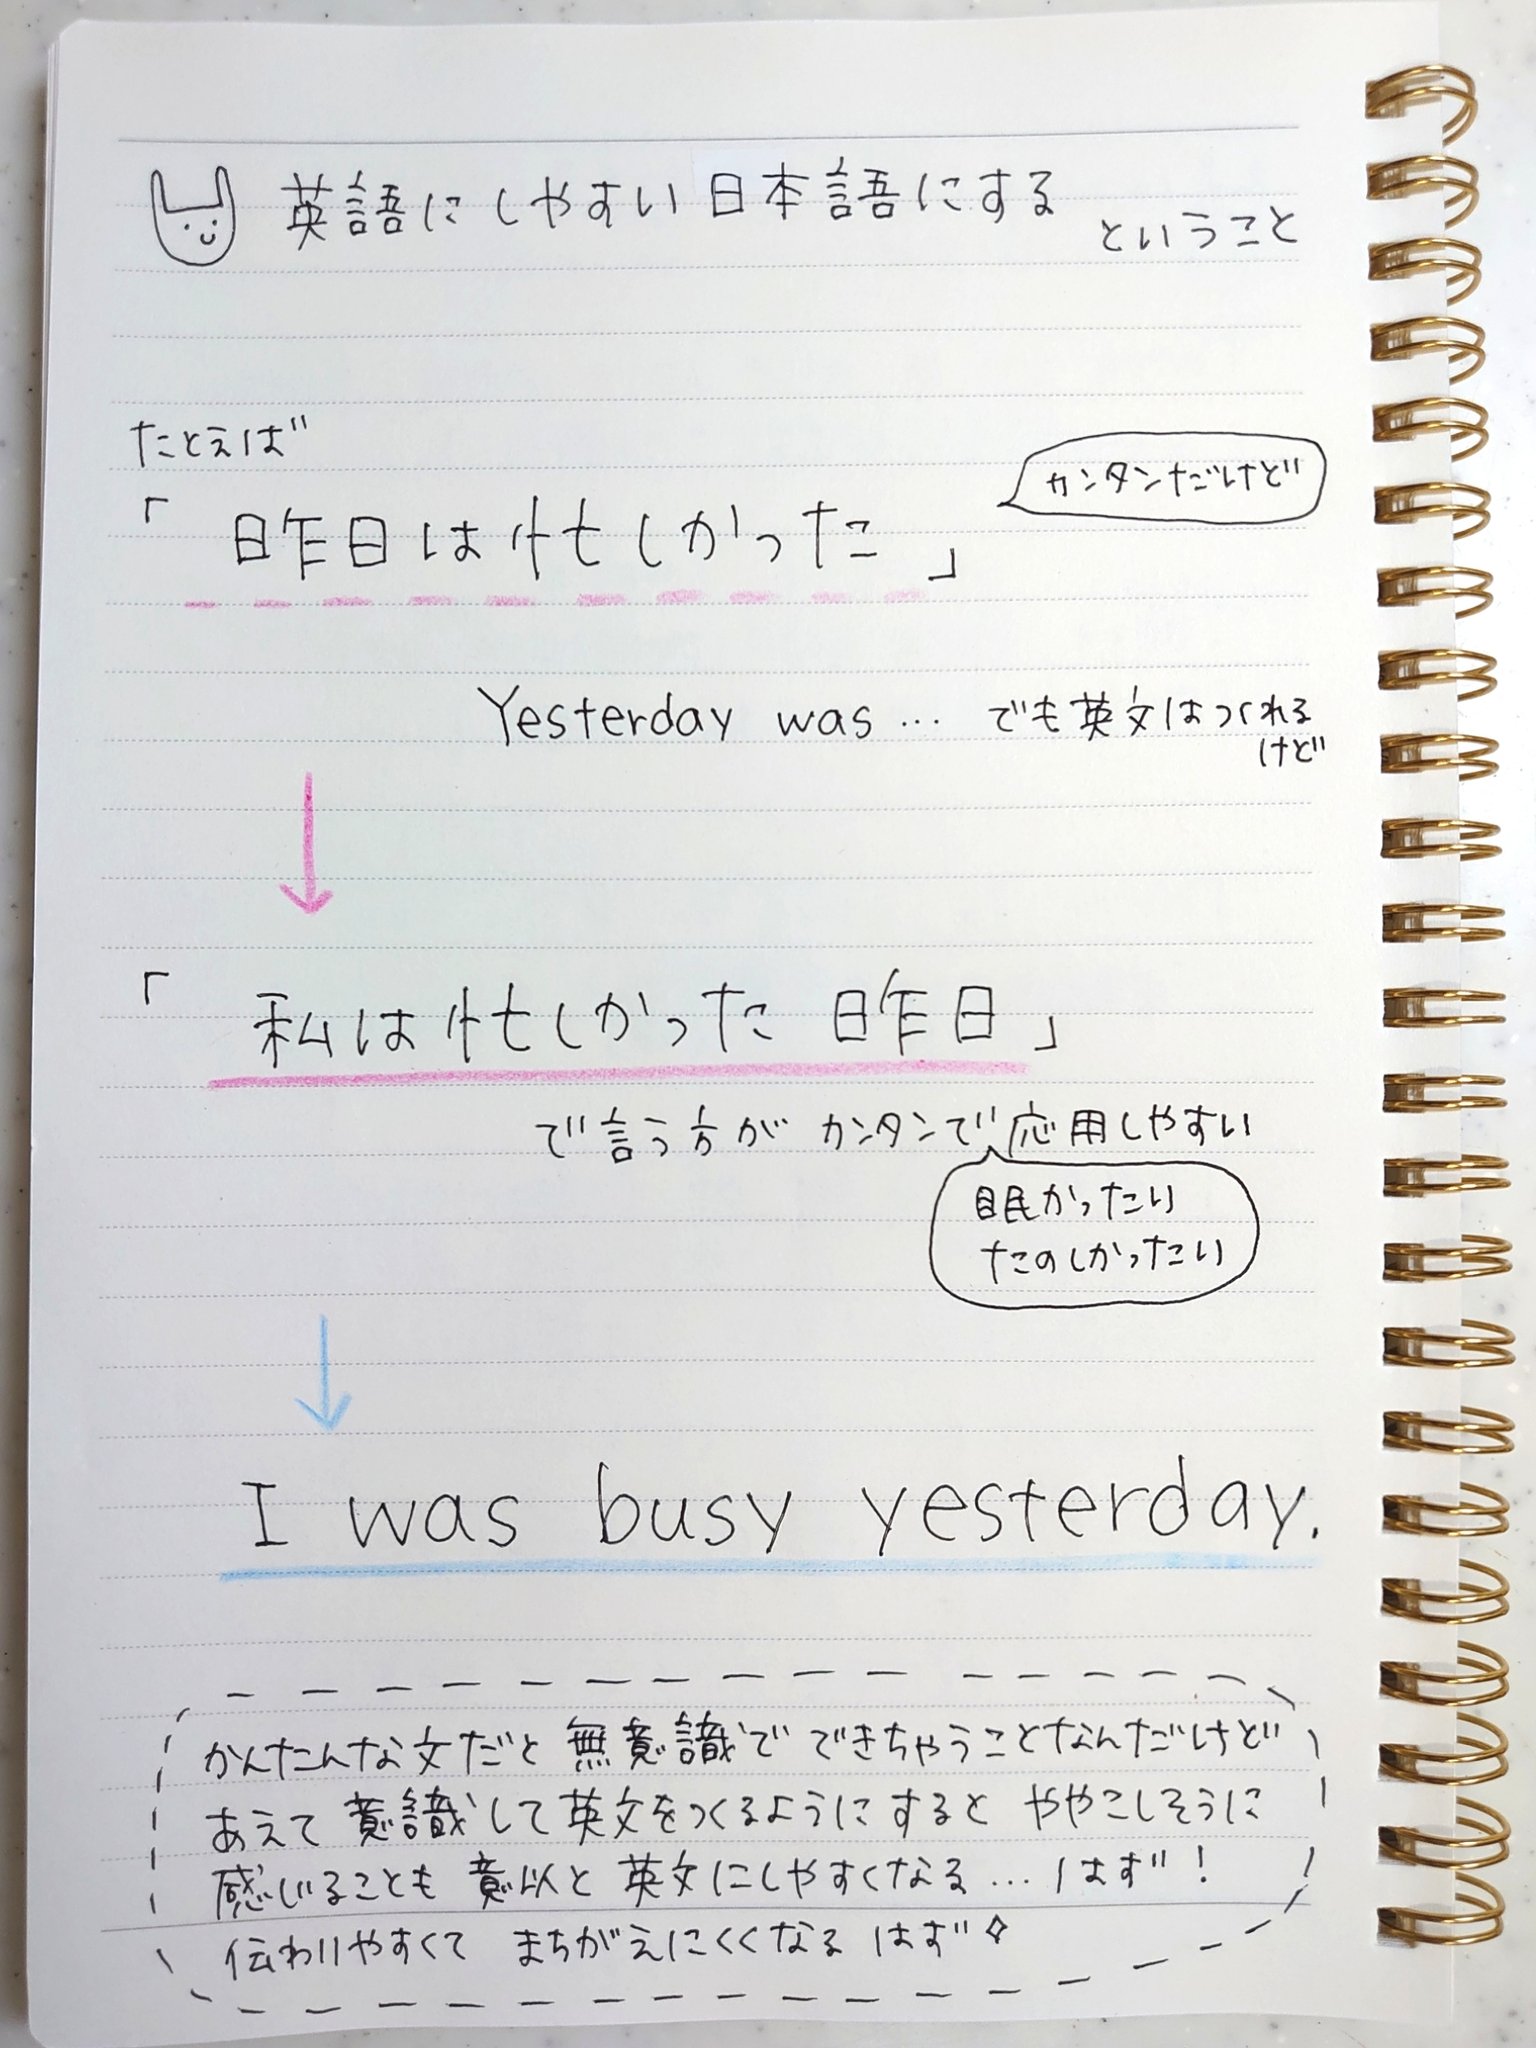 英語にしやすい日本語にする
ということ
たとえば
「昨日は忙しかった」
カンタンだけど
Yesterday was … でも英文はつくれる
けど
「私は忙しかった 昨日」
で言う方が カンタンで応用しやすい
眠かったい
たのしかったい
I was busy yesterday.
かんたんな文だと 無意識で できちゃうことなんだけど
あえて 意識して英文をつくるようにすると ややこしそうに
感じることも 意以と 英文にしやすくなる… はず！
伝わりやすくて まちがえにくくなる はず